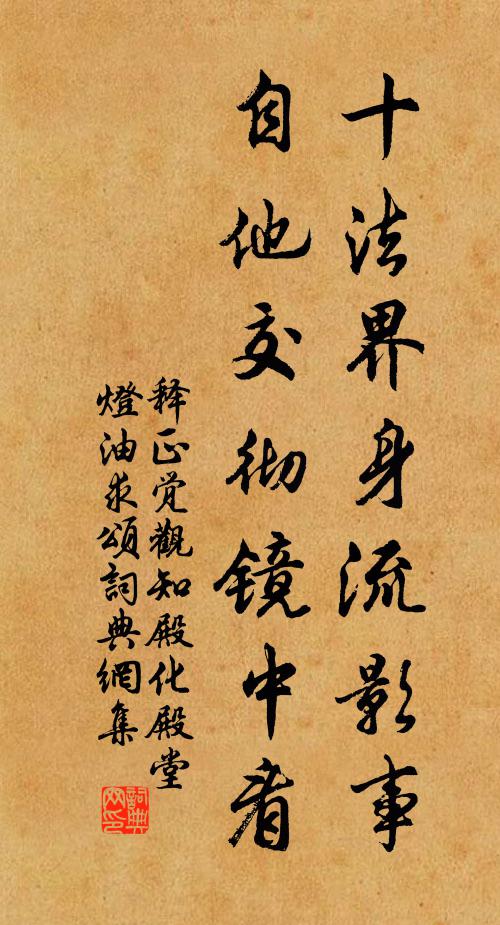 十法界身流影事
自他交彻镜中看
释正觉觀知殿化殿堂
燈油求頌詞典網集
詞典
网印